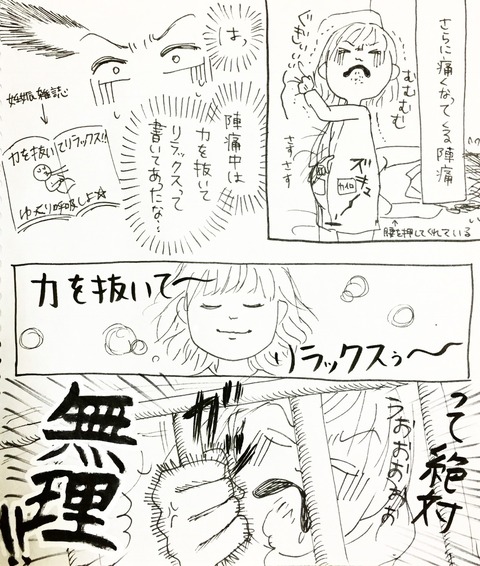 さらに痛くなってくる陣痛
むむむむ
ぐぎぃ…
さすさす
ズキュ
カイロ
↑
腰を押してくれている
はっ
陣痛中は
力を抜いて
リラックスって
書いてあったな…
妊娠雑誌
力を抜いてリラックス!!
ゆったり呼吸しよ☆
力を抜いて〜
リラックスぅ〜
って絶対
うおおおぉぉ
ガッ
無理!!